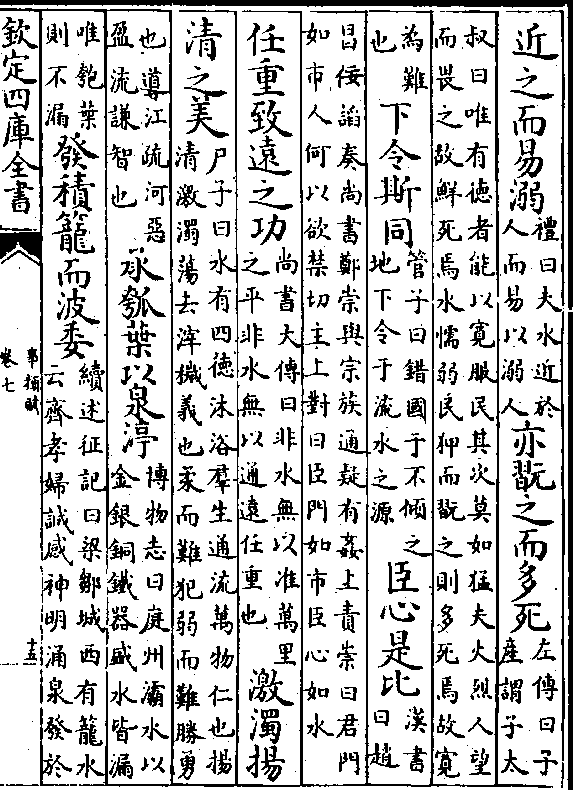 近之而易溺禮曰夫水近於人而易以溺人亦翫之而多死左傳曰子產謂子太
叔曰唯有徳者能以寛服民其次莫如猛夫火烈人望而畏之故鮮死焉水懦弱民狎而翫之則多死焉故寛
為難也下令斯同管子曰錯國于不傾之地下令于流水之源臣心是比漢書曰趙
昌佞謟奏尚書鄭崇與宗族通疑有姦上責崇曰君門如市人何以欲禁切主上對曰臣門如市臣心如水
任重致遠之功尚書大傳曰非水無以准萬里之平非水無以通遠任重也激濁揚
清之美尸子曰水有四徳沐浴羣生通流萬物仁也揚清激濁蕩去滓穢義也柔而難犯弱而難勝勇
也導江疏河惡盈流謙智也承瓠葉以泉渟博物志曰庭州灞水以金銀銅鐵器盛水皆漏
唯瓠葉則不漏發積籠而波委續述征記曰梁鄒城西有籠水云齊孝婦誠感神明涌泉發於
欽定四庫全書
事類賦
卷七
十五